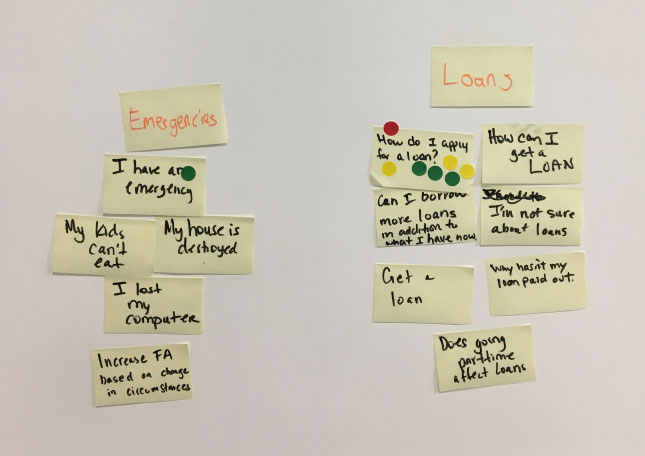 Emergencies
I have an
emergency
My kids
can't
eat
My house is
destroyed
I lost
my
computer
Increase FA
based on change
in circumstances
Loans
How do I apply
for a loan?
How can I
get a
LOAN
Can I borrow
more loans
in addition to
what I have now
I'm not sure
about loans
Get a
loan
Why hasn't my
loan paid out.
Does going
part-time
affect Loans